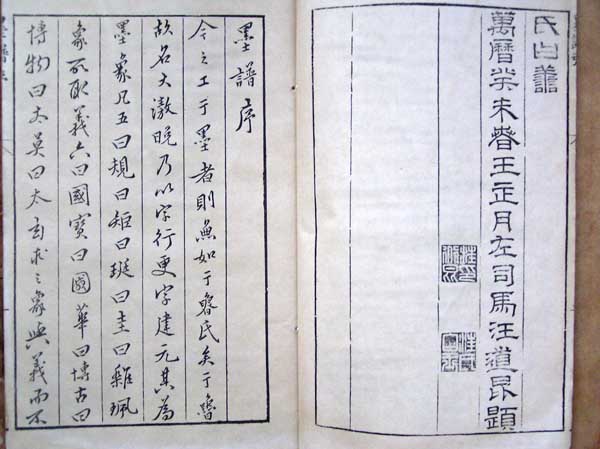 氏白譱
萬曆癸未春王正月左司馬汪道昆題
墨譜序
今之工于墨者則無如于魯氏矣于魯
故名大滶晚乃以字行更字建元其為
墨象凡五曰規曰矩曰珽曰圭曰雜珮
象所取義六曰國寶曰國華曰博古曰
博物曰太莫曰太玄求之象與義而不